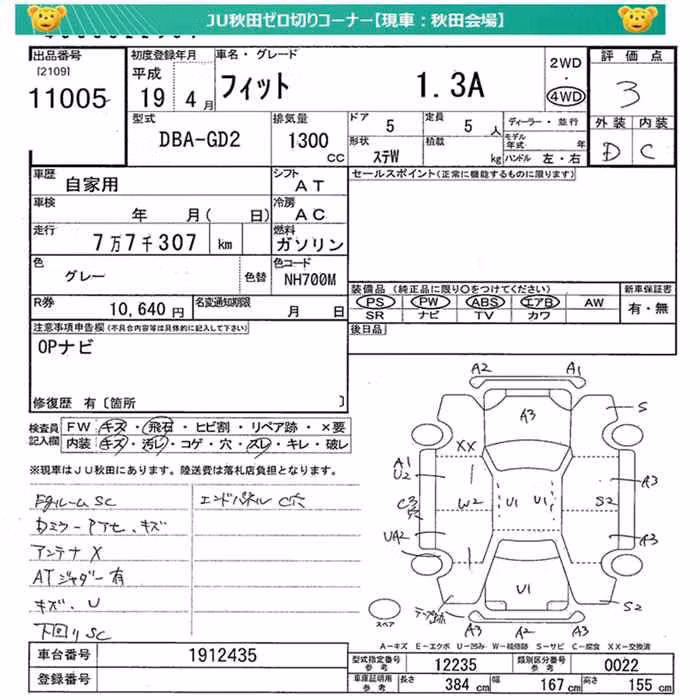 JU秋田ゼロ切りコーナー【現車：秋田会場】
出品番号 初度登録年月 車名・グレード 2WD 評価点
[2109] 平成 ・
11005 19 4月 フィット 1.3A 4WD 3
型式 排気量 ドア 5 定員 5人 ディーラー・並行 外装 内装
DBA-GD2 1300CC 形状 ステW 積載 kg モデル年式 年 D C
ハンドル 左・右
車歴 自家用 シフト AT セールスポイント(正常に機能するものに限ります)
車検 年 月( 日) 冷房 AC
走行 7万7千307 km 燃料 ガソリン
色 グレー 色替 色コード NH700M
装備品 (純正品に限り○をつけてください) 新車保証書
R券 10,640円 名変通知期限 月 日 PS PW ABS エアB AW 有・無
SR ナビ TV カワ
注意事項申告欄(不具合内容等は具体的に記入して下さい) 後日品
OPナビ
修復歴 有[箇所 ]
検査員記入欄 FW キズ・飛石・ヒビ割・リペア跡・×要
内装 キズ・汚レ・コゲ・穴・スレ・キレ・破レ
※現車はJU秋田にあります。陸送費は落札店負担となります。
Fgルーム SC エンドパネル C穴
Dミラー PTセ、キズ
アンテナ X
ATジャダー有
キズ、U
下回り SC
A2 A1
A3 S
XX
A1 U2 A3
W2 U1 U1 S2
C3 穴
UA2 A3
U1
テープ跡 S2
A3 A2 A3
スペア
A－キズ E－エクボ U－凹み W－補修跡 S－サビ C－腐食 XX－交換済
車台番号 1912435 型式指定番号 参考 12235 類別区分番号 参考 0022
登録番号 車庫証明用 参考 長さ 384cm 幅 167cm 高さ 155cm